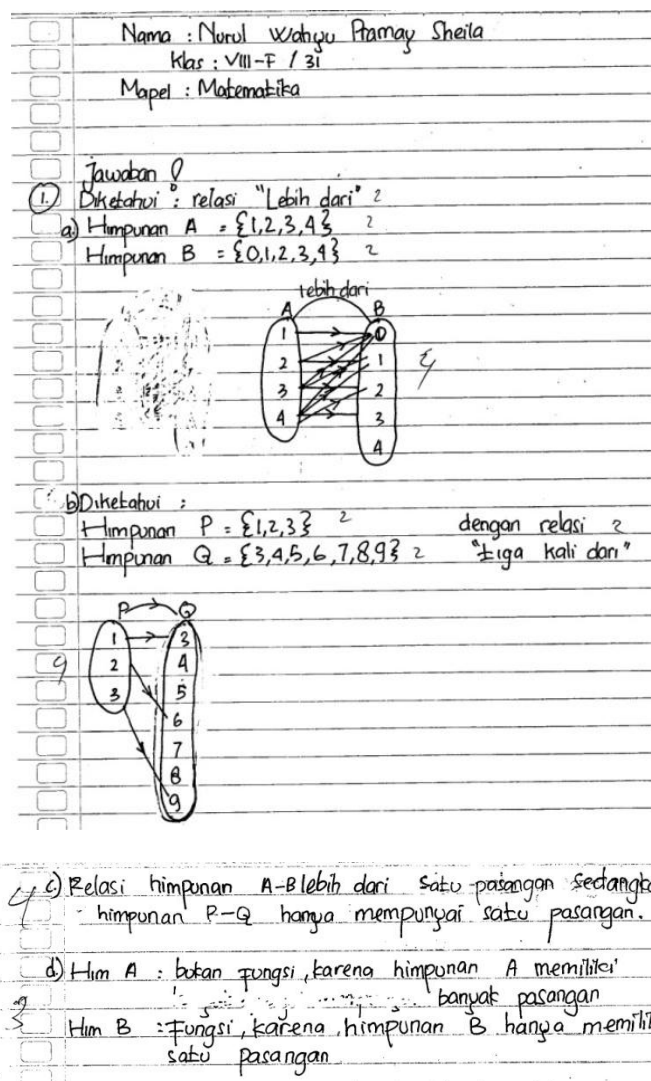 Nama : Nurul Wahyu Pramay Sheila
Klas : VIII-F / 31
Mapel : Matematika
Jawaban !
1. Diketahui : relasi "Lebih dari" 2
a) Himpunan A = {1,2,3,4} 2
Himpunan B = {0,1,2,3,4} 2
lebih dari
A B
1 0
2 1
3 2
4 3
4
4
b) Diketahui :
Himpunan P = {1,2,3} 2 dengan relasi 2
Himpunan Q = {3,4,5,6,7,8,9} 2 "tiga kali dari"
P Q
1 3
2 4
3 5
6
7
8
9
4
4 c) Relasi himpunan A-B lebih dari satu pasangan sedangka
himpunan P-Q hanya mempunyai satu pasangan.
d) Him A : bukan fungsi, karena himpunan A memiliki
banyak pasangan
3 Him B : Fungsi, karena, himpunan B hanya memili
satu pasangan